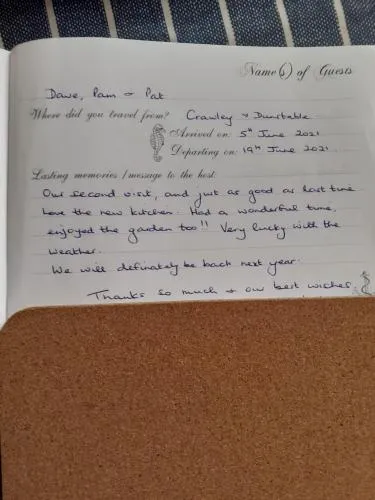 Name(s) of Guests
Dave, Pam & Pat
Where did you travel from? Crawley & Dunstable
Arrived on: 5th June 2021
Departing on: 19th June 2021
Lasting memories / message to the host:
Our second visit, and just as good as last time
Love the new kitchen. Had a wonderful time,
enjoyed the garden too!! Very lucky with the
weather.
We will definately be back next year.
Thanks so much & our best wishes